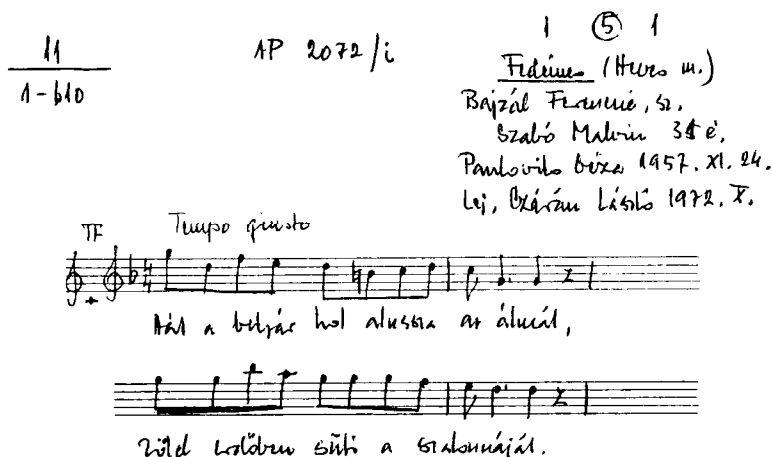 11
1-b10
AP 2072/i
1 5 1
Fedémes (Heves m.)
Bajzát Ferencné, sz.
Szabó Malvin 31 é.
Pantovits Géza 1957. XI. 24.
Lej. Czárán László 1972. X.
TF
Tempo giusto
Hát a betyár hol alussza az álmát,
Zöld erdőben süti a szalonnáját.